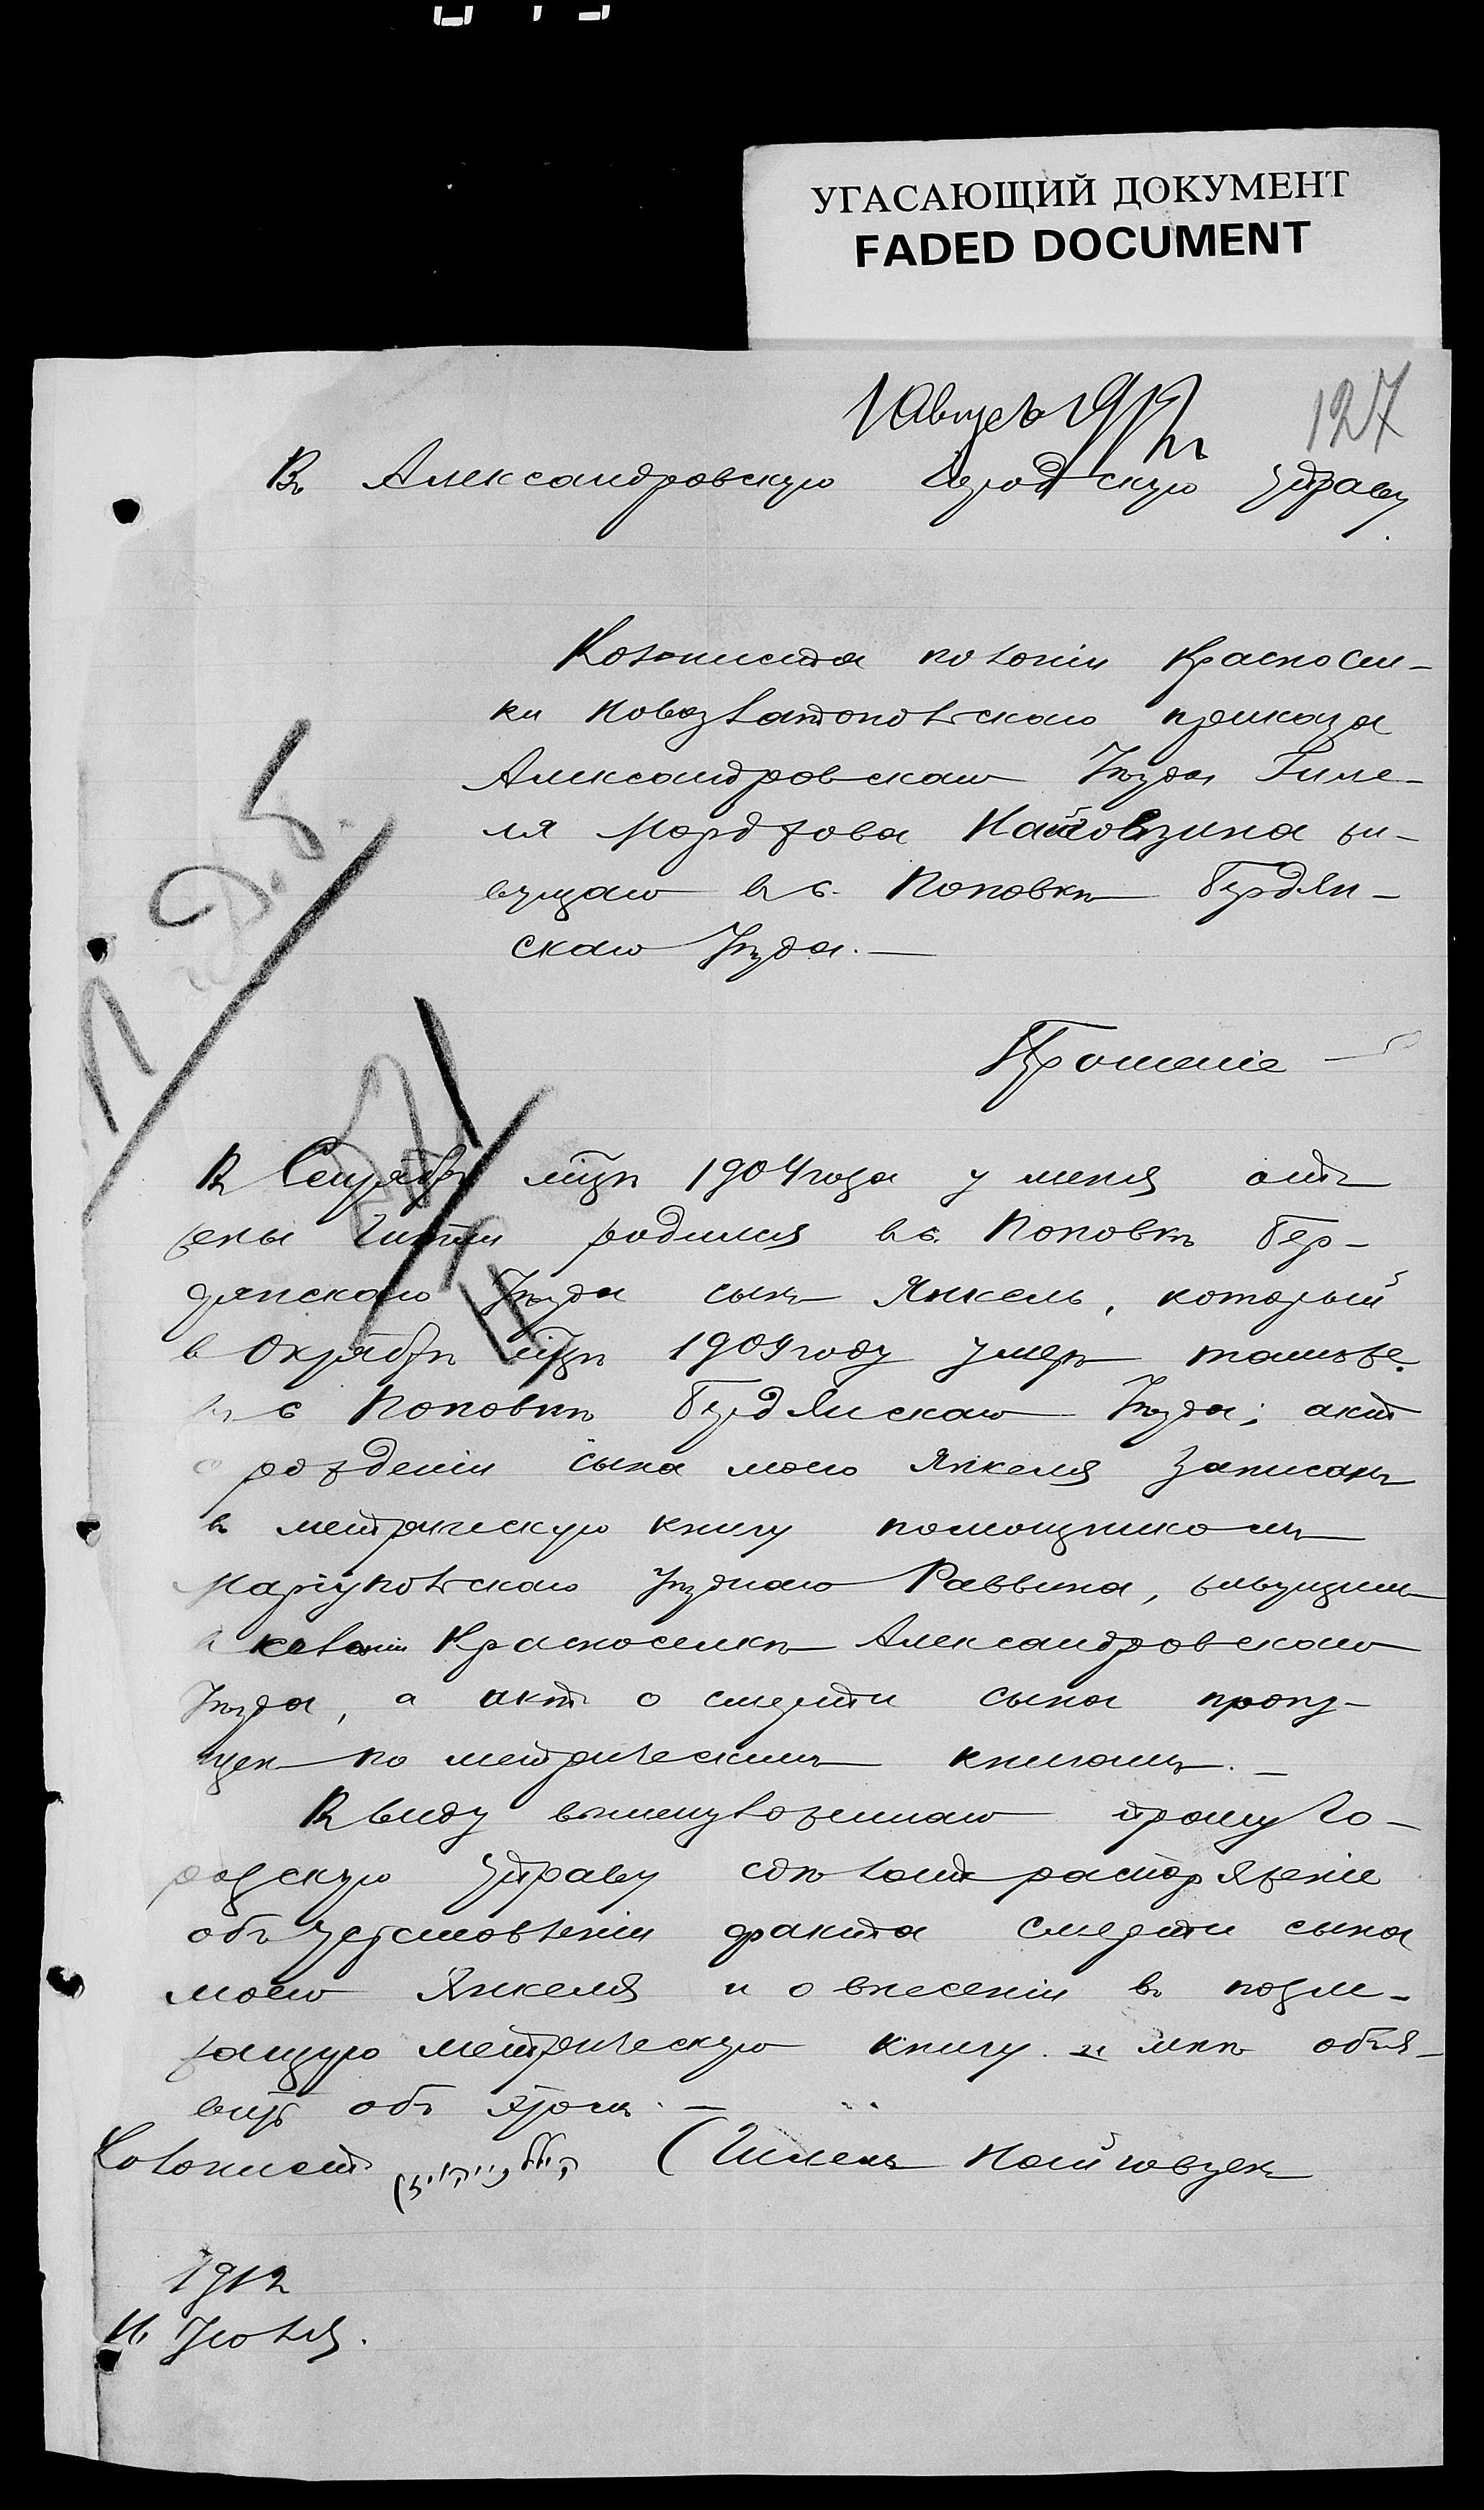 УГАСАЮЩИЙ ДОКУМЕНТ
FADED DOCUMENT
127
1 Августа 1912 г.
Въ Александровскую Городскую Управу.
Колониста колоніи Красносел-
ки Новозлатопольскаго приказа
Александровскаго Уѣзда Гиле-
ля Мордхова Найговзина жи-
вущаго въ с. Поповкѣ Бердян-
скаго Уѣзда.—
Прошеніе
Въ Сентябрѣ мѣсяцѣ 1904 года у меня отъ
жены родился въ с. Поповкѣ Бер-
дянскаго Уѣзда сынъ Янкель, который
в Октябрѣ 1909 году умеръ тамъ же.
въ с Поповкѣ Бердянскаго Уѣзда; актъ
о рожденіи сына моего Янкеля записанъ
въ метрическую книгу помощникомъ
Маріупольскаго Уѣзднаго Раввина, живущимъ
в колоніи Красноселкѣ Александровскаго
Уѣзда, а актъ о смерти сына пропу-
щен по метрическимъ книгамъ.—
Въ виду вышеизложеннаго прошу Го-
родскую Управу сдѣлать распоряженіе
объ установленіи факта смерти сына
моего Янкеля и о внесеніи въ подле-
жащую метрическую книгу и мнѣ объя-
вить объ этомъ.—
Колонист (Гилель Найговзен
1912
Іюля.